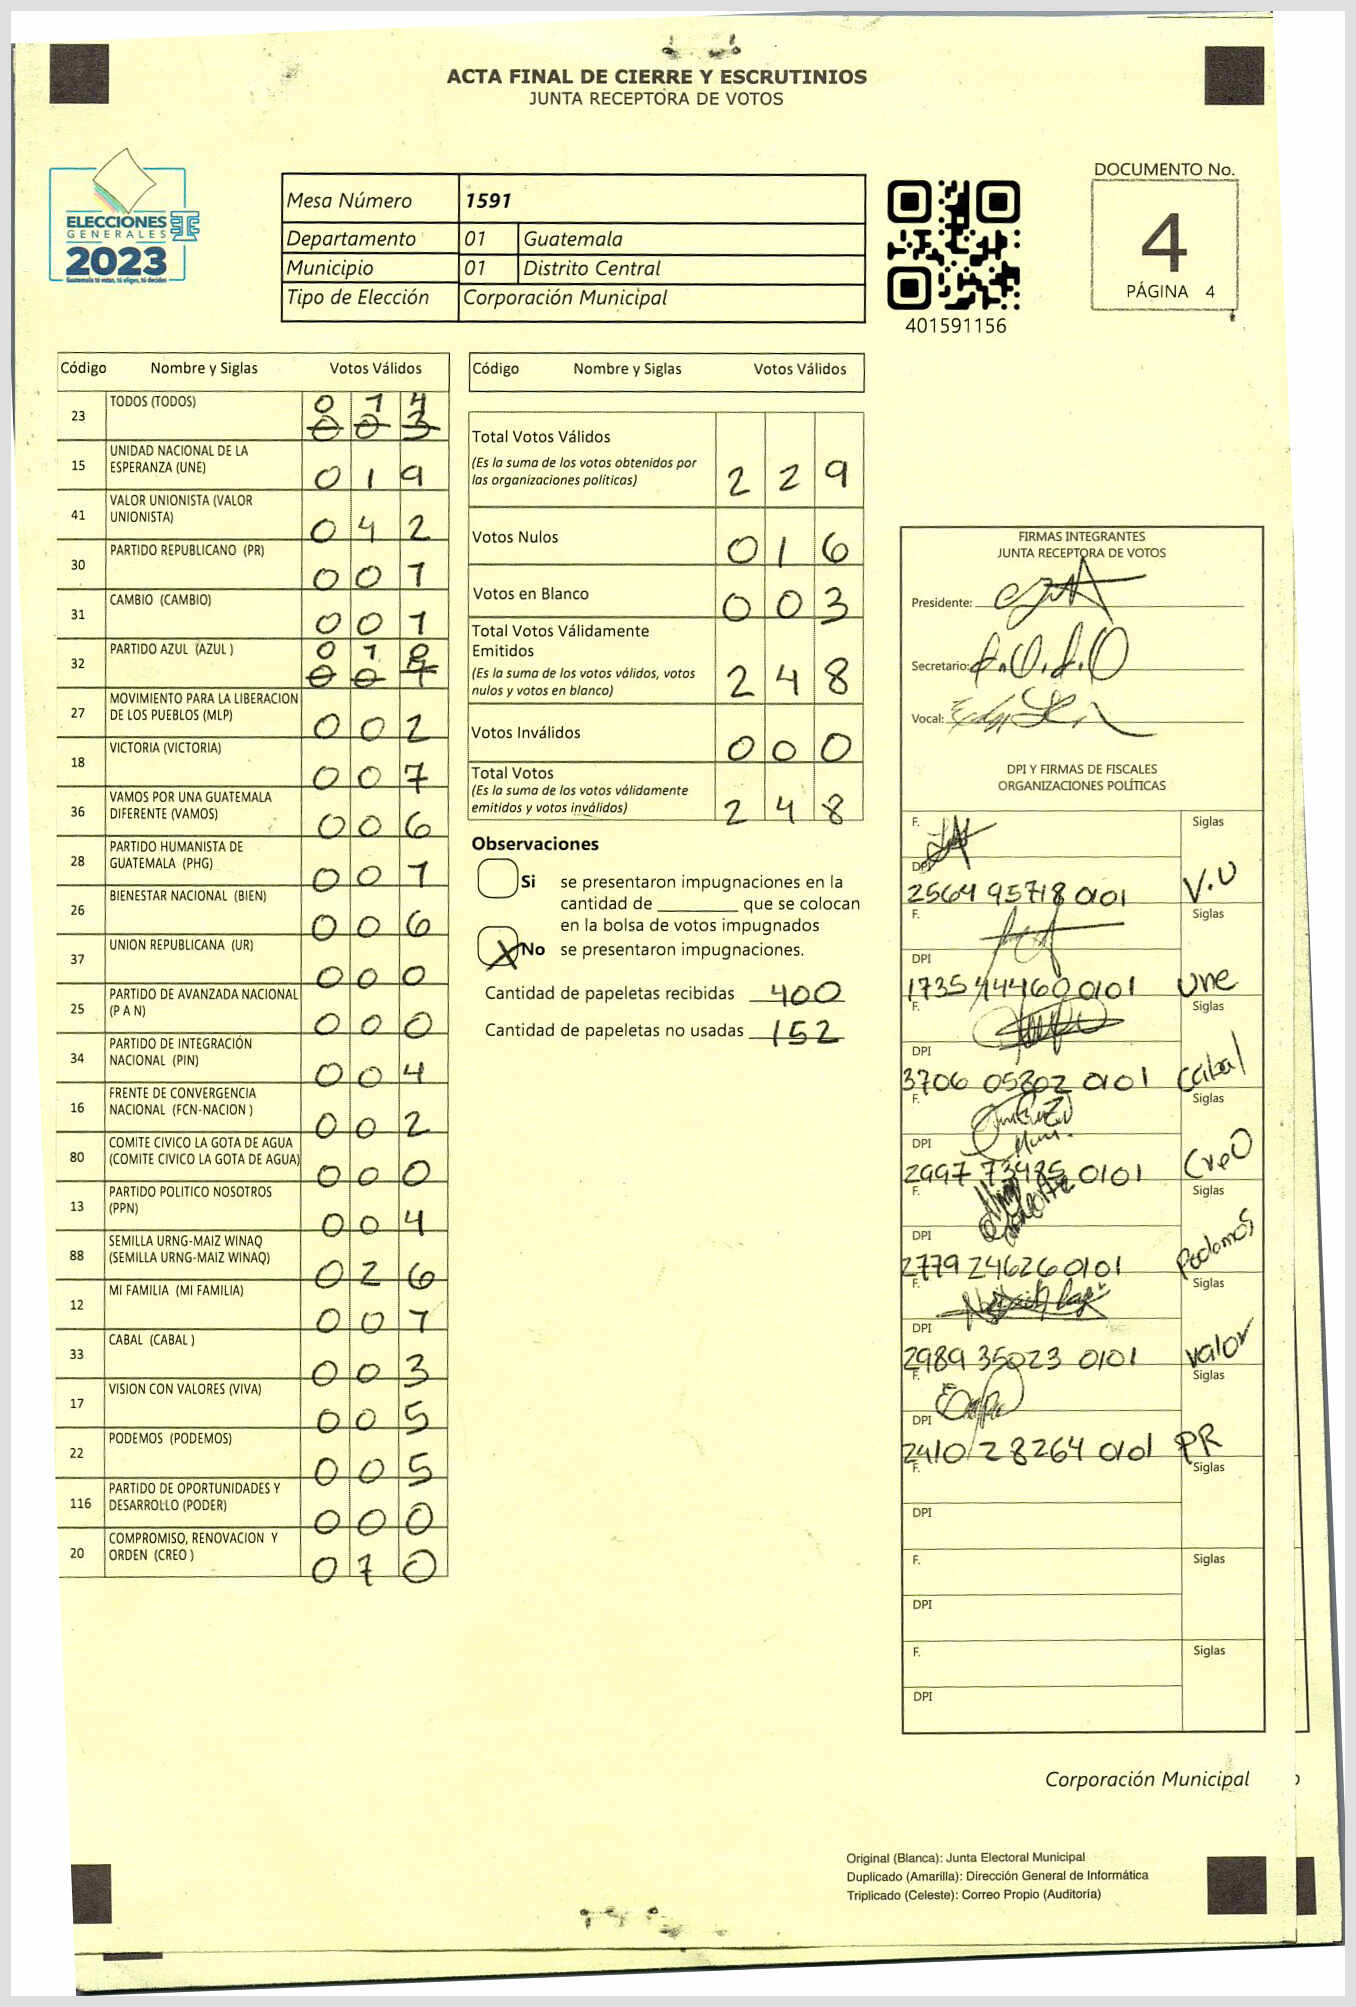 ACTA FINAL DE CIERRE Y ESCRUTINIOS
JUNTA RECEPTORA DE VOTOS
ELECCIONES
GENERALES
2023
Guatemala tú votas, tú eliges, tú decides
Mesa Número 1591
Departamento 01 Guatemala
Municipio 01 Distrito Central
Tipo de Elección Corporación Municipal
401591156
DOCUMENTO No.
4
PÁGINA 4
Código Nombre y Siglas Votos Válidos
23 TODOS (TODOS) 0 1 4
0 0 3
15 UNIDAD NACIONAL DE LA
ESPERANZA (UNE) 0 1 9
41 VALOR UNIONISTA (VALOR
UNIONISTA) 0 4 2
30 PARTIDO REPUBLICANO (PR) 0 0 1
31 CAMBIO (CAMBIO) 0 0 1
32 PARTIDO AZUL (AZUL ) 0 1 0
0 0
27 MOVIMIENTO PARA LA LIBERACION
DE LOS PUEBLOS (MLP) 0 0 2
18 VICTORIA (VICTORIA) 0 0 7
36 VAMOS POR UNA GUATEMALA
DIFERENTE (VAMOS) 0 0 6
28 PARTIDO HUMANISTA DE
GUATEMALA (PHG) 0 0 1
26 BIENESTAR NACIONAL (BIEN) 0 0 6
37 UNION REPUBLICANA (UR) 0 0 0
25 PARTIDO DE AVANZADA NACIONAL
(P A N) 0 0 0
34 PARTIDO DE INTEGRACIÓN
NACIONAL (PIN) 0 0 4
16 FRENTE DE CONVERGENCIA
NACIONAL (FCN-NACION ) 0 0 2
80 COMITE CIVICO LA GOTA DE AGUA
(COMITE CIVICO LA GOTA DE AGUA) 0 0 0
13 PARTIDO POLITICO NOSOTROS
(PPN) 0 0 4
88 SEMILLA URNG-MAIZ WINAQ
(SEMILLA URNG-MAIZ WINAQ) 0 2 6
12 MI FAMILIA (MI FAMILIA) 0 0 1
33 CABAL (CABAL ) 0 0 3
17 VISION CON VALORES (VIVA) 0 0 5
22 PODEMOS (PODEMOS) 0 0 5
116 PARTIDO DE OPORTUNIDADES Y
DESARROLLO (PODER) 0 0 0
20 COMPROMISO, RENOVACION Y
ORDEN (CREO ) 0 7 0
Código Nombre y Siglas Votos Válidos
Total Votos Válidos
(Es la suma de los votos obtenidos por
las organizaciones politicas) 2 2 9
Votos Nulos 0 1 6
Votos en Blanco 0 0 3
Total Votos Válidamente
Emitidos
(Es la suma de los votos válidos, votos
nulos y votos en blanco) 2 4 8
Votos Inválidos 0 0 0
Total Votos
(Es la suma de los votos válidamente
emitidos y votos inválidos) 2 4 8
Observaciones
Si se presentaron impugnaciones en la
cantidad de ________ que se colocan
en la bolsa de votos impugnados
X No se presentaron impugnaciones.
Cantidad de papeletas recibidas 400
Cantidad de papeletas no usadas 152
FIRMAS INTEGRANTES
JUNTA RECEPTORA DE VOTOS
Presidente:
Secretario:
Vocal:
DPI Y FIRMAS DE FISCALES
ORGANIZACIONES POLÍTICAS
F. Siglas
DPI
2564 95718 0101 V.U
F. Siglas
DPI
1735 44460 0101 Une
F. Siglas
DPI
3706 05302 0101 Cabal
F. Siglas
DPI
2997 73485 0101 CreO
F. Siglas
DPI
2779 24626 0101 Podemos
F. Siglas
DPI
2989 35023 0101 valor
F. Siglas
DPI
2410 28264 0101 PR
F. Siglas
DPI
F. Siglas
DPI
F. Siglas
DPI
Corporación Municipal
Original (Blanca): Junta Electoral Municipal
Duplicado (Amarilla): Dirección General de Informática
Triplicado (Celeste): Correo Propio (Auditoría)